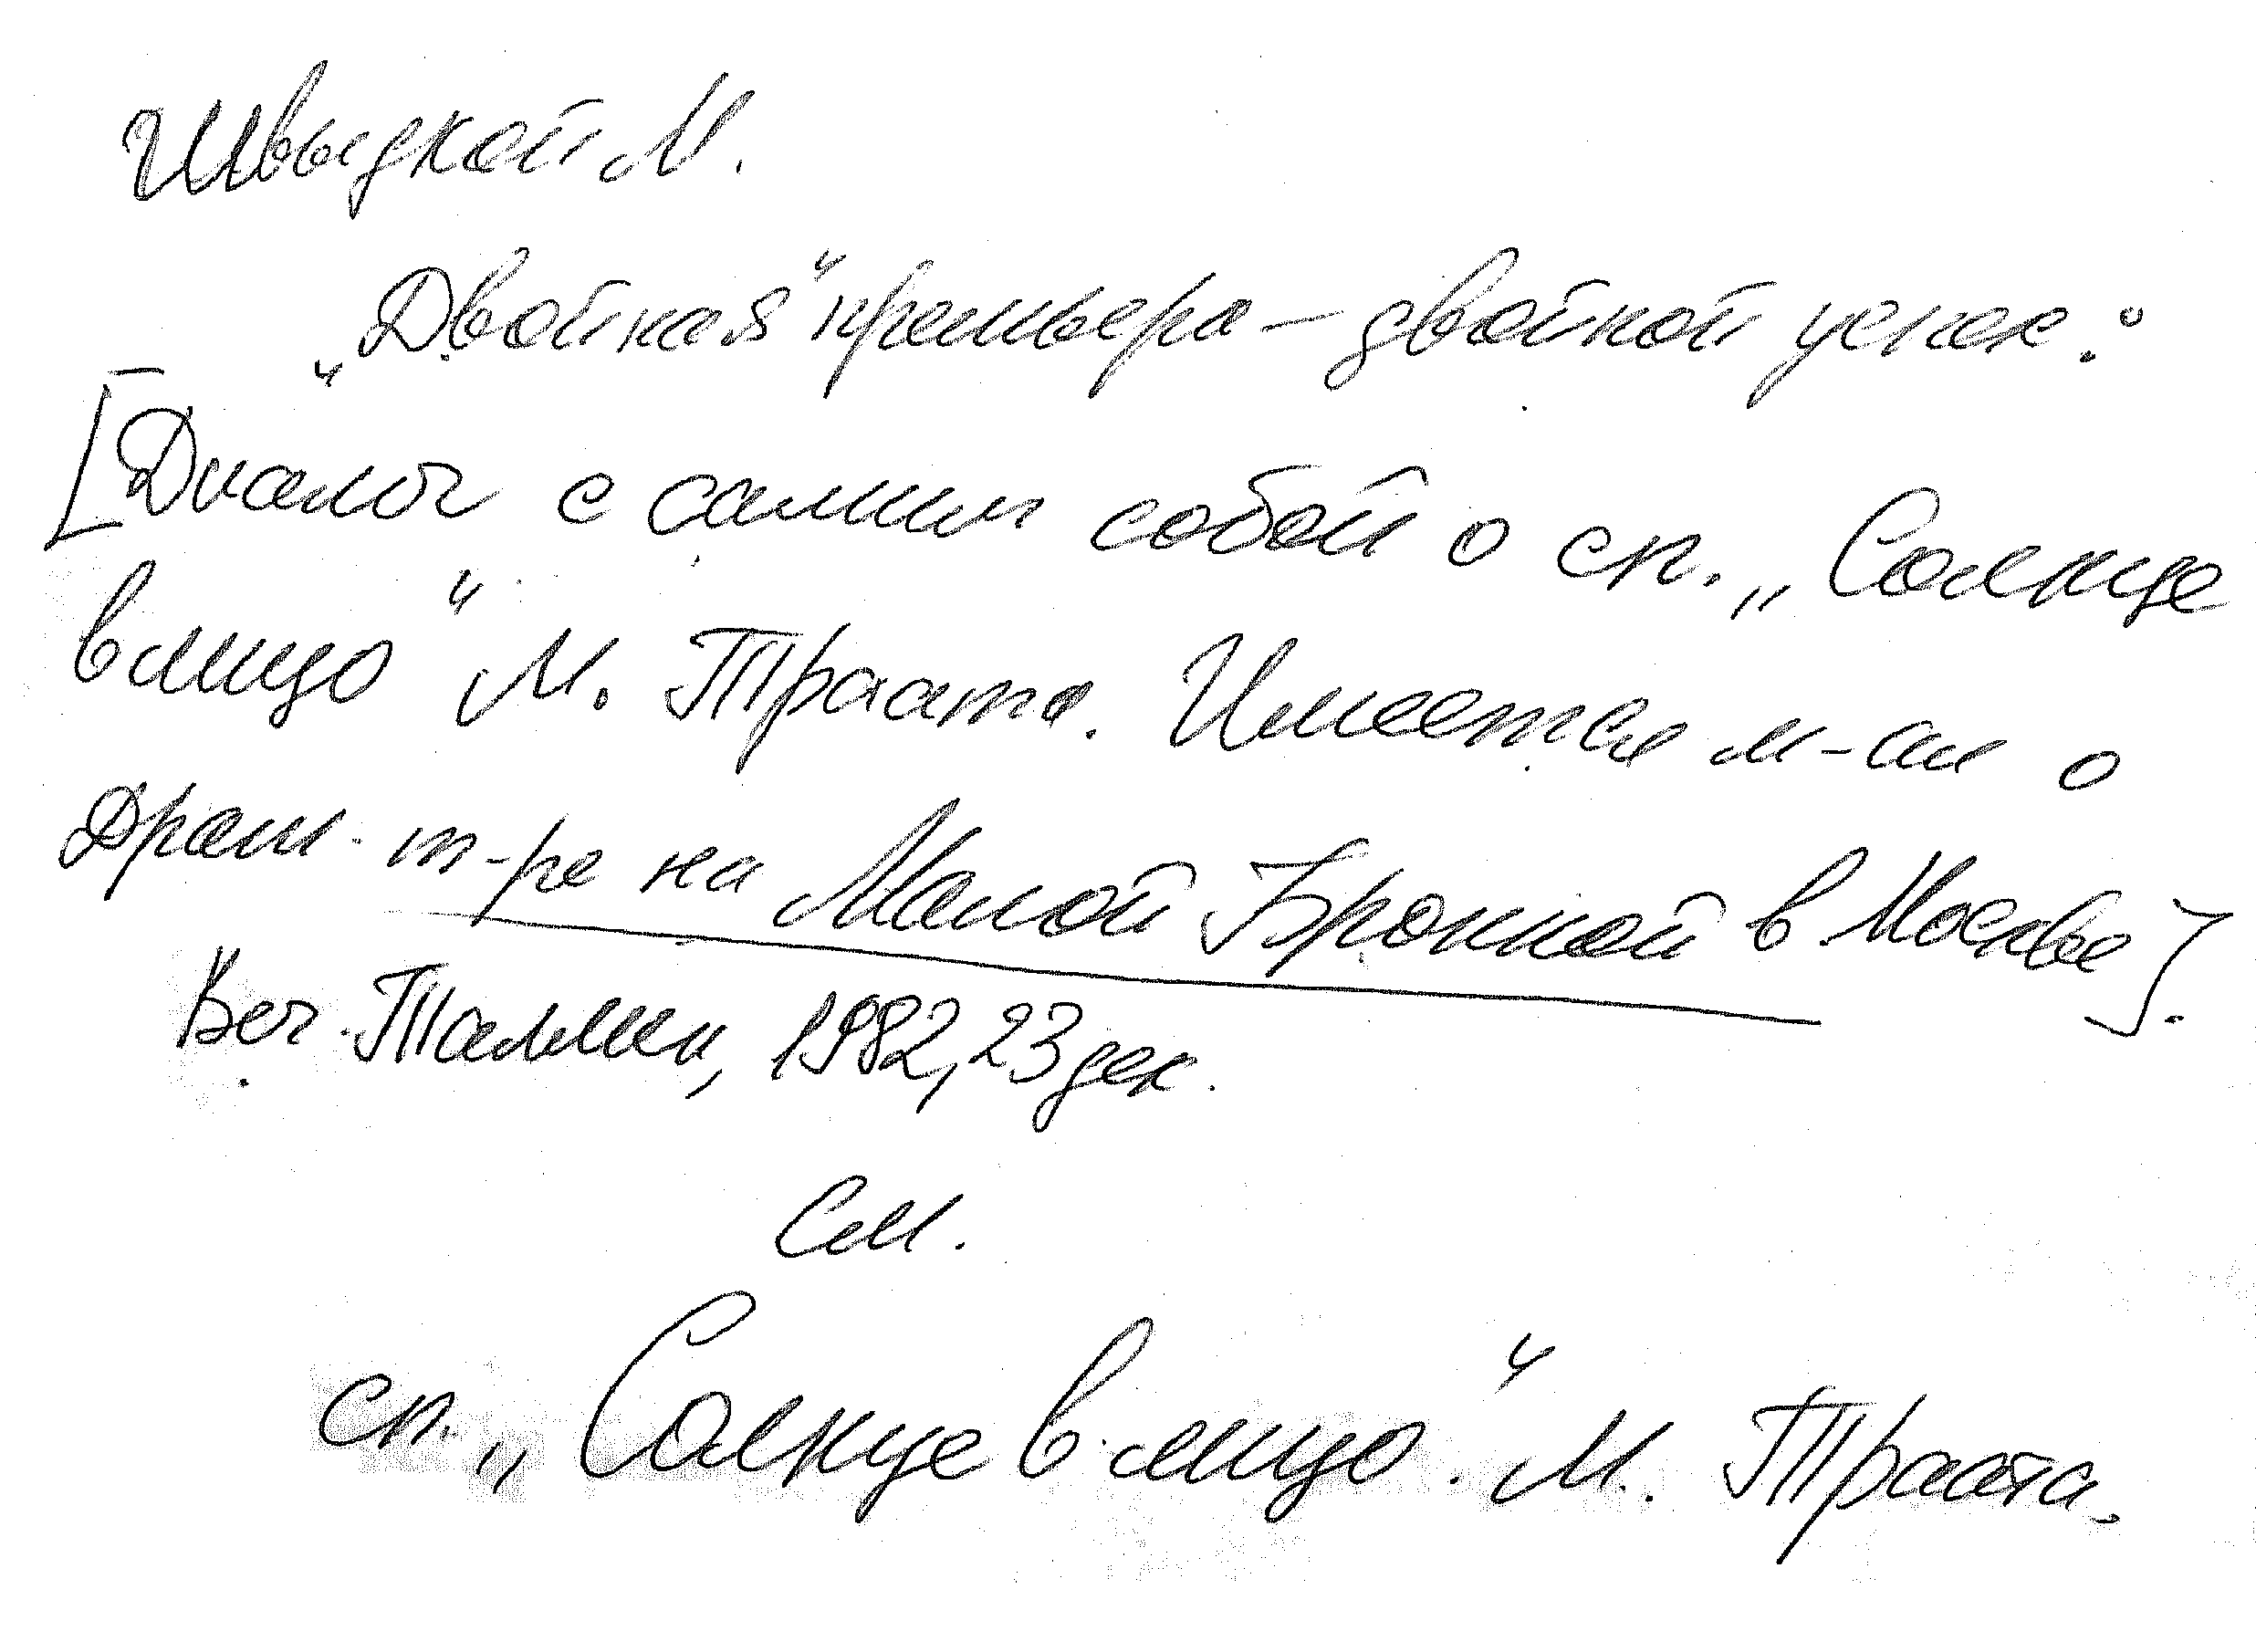 Швыдкой М.
„Двойная“ премьера — двойной успех.
[Диалог с самим собой о сп. „Солнце
в лицо“ М. Траата. Имеется м-ал о
Драм. т-ре на Малой Бронной в Москве].
Веч. Таллин, 1982, 23 дек.
См.
сп. „Солнце в лицо“. М. Траата.